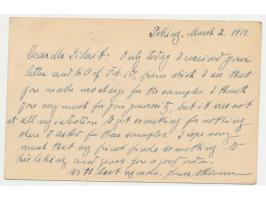 Peking, March 2, 1914.
Dear Mr. : Only today I received your
letter and bill of Feb. 10, from which I see that
you make no charge for the samples. I thank
you very much for your generosity, but it was not
at all my intention to get something for nothing
when I asked for those samples. I hope very
much that my friend finds something to
his liking and gives you a good order.
With best regards, yours